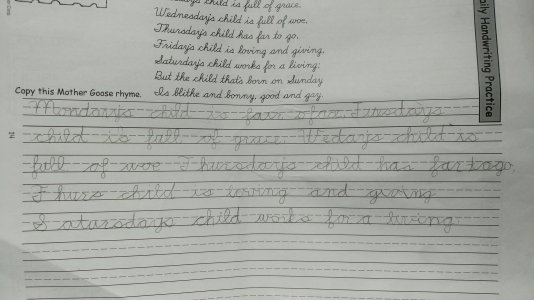 child is full of grace.
Wednesday's child is full of woe,
Thursday's child has far to go,
Friday's child is loving and giving,
Saturday's child works for a living;
But the child that's born on Sunday
Copy this Mother Goose rhyme. Is blithe and bonny, good and gay.
Daily Handwriting Practice
Monday's child is fair of Tuesdays
child is full of grace, Wedays child is
full of woe Thursday's child has far to go,
Thurs child is loving and giving
Satursdays child works for a living